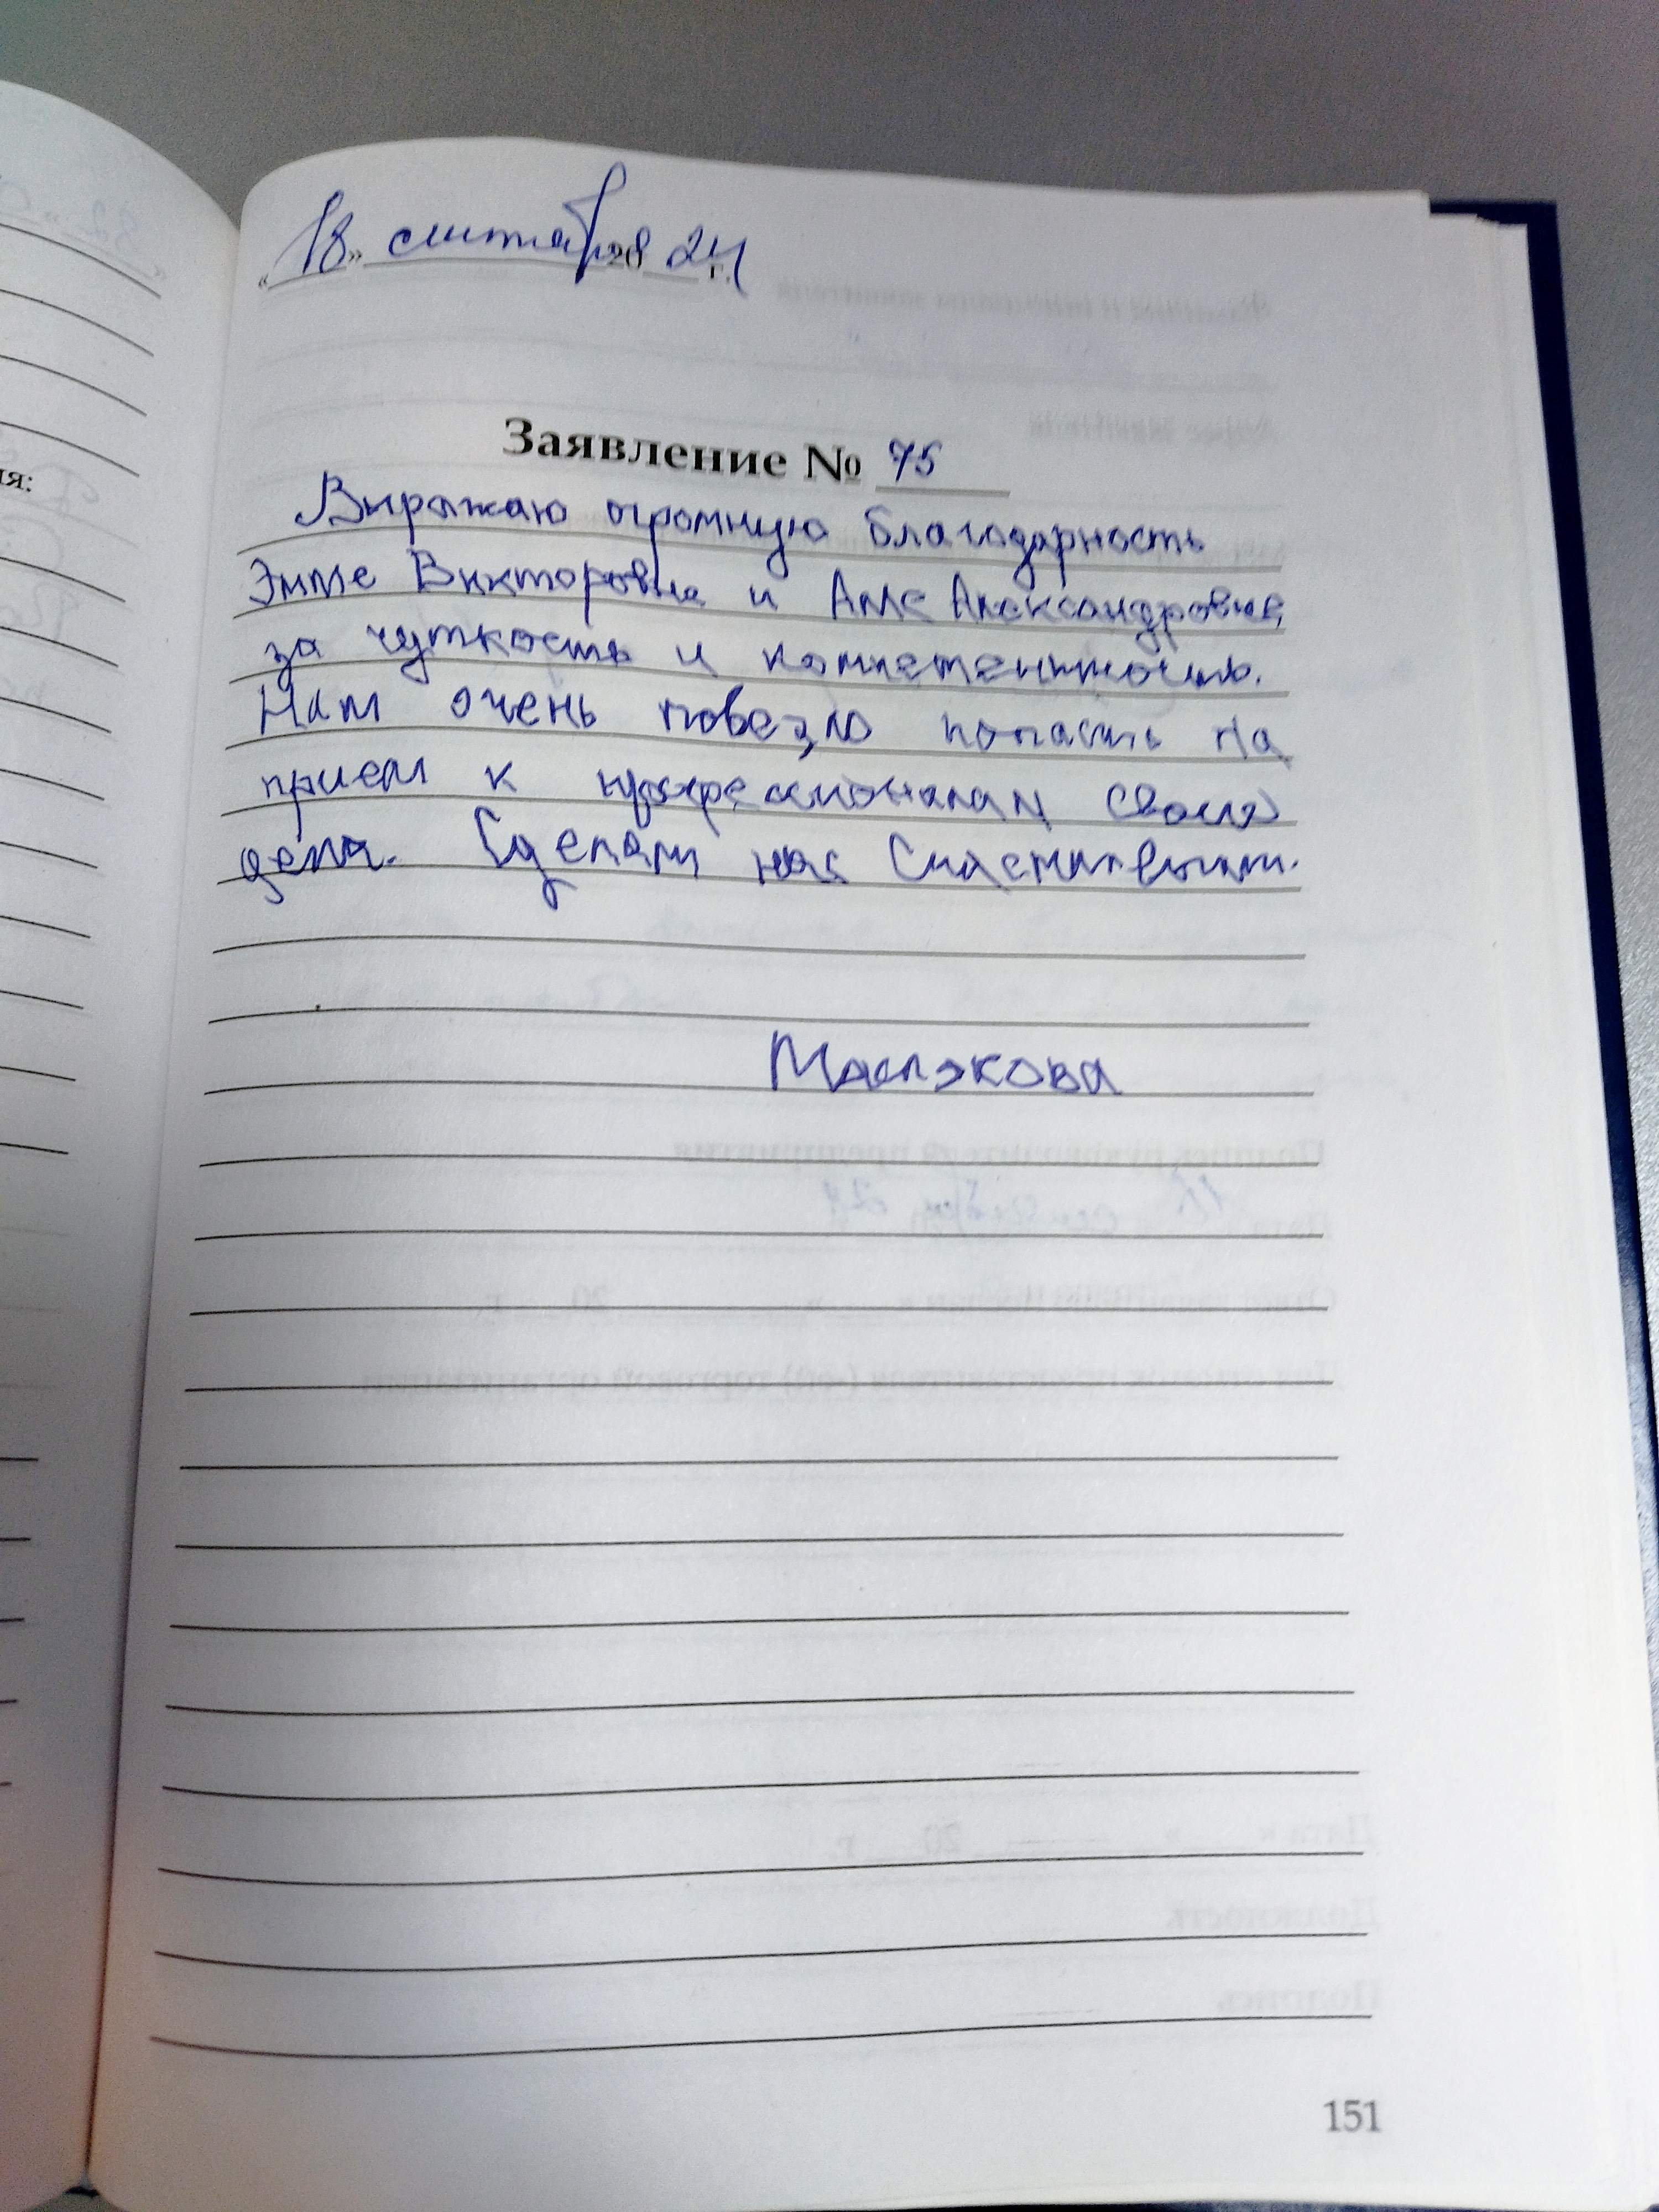 «18» сентября 2024 г.
Заявление № 75
Выражаю огромную благодарность
Эмме Викторовне и Алле Александровне,
за чуткость и компетентность.
Нам очень повезло попасть на
прием к профессионалам своего
дела. Сделали нас счастливыми.
Маслякова
151